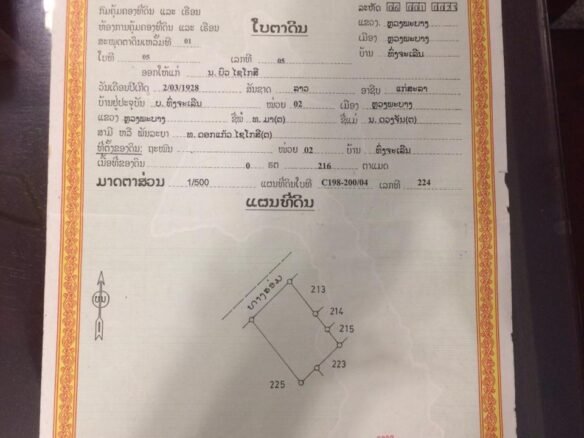 ກົມຄຸ້ມຄອງທີ່ດິນ ແລະ ເຮືອນ
ລະຫັດ 06 001 0033
ຫ້ອງການຄຸ້ມຄອງທີ່ດິນ ແລະ ເຮືອນ
ໃບຕາດິນ
ແຂວງ. ຫຼວງພະບາງ
ສະໝຸດຕາດິນເຫລັ້ມທີ 01
ເມືອງ ຫຼວງພະບາງ
ໃບທີ 05 ເລກທີ 05
ບ້ານ ທົ່ງຈະເລີນ
ອອກໃຫ້ແກ່ ນ. ບົວ ໄຊໂກສີ
ວັນເດືອນປີເກີດ 2/03/1928 ສັນຊາດ ລາວ ອາຊີບ ແກ່ສະລາ
ບ້ານຢູ່ປະຈຸບັນ ບ. ທົ່ງຈະເລີນ ໜ່ວຍ 02 ເມືອງ ຫຼວງພະບາງ
ແຂວງ ຫຼວງພະບາງ ຊື່ພໍ່ ທ. ມາ(ຕ) ຊື່ແມ່ ນ. ດວງຈັນ(ຕ)
ສາມີ ຫລື ພັນລະຍາ ທ. ດອກແກ້ວ ໄຊໂກສີ(ຕ)
ທີ່ຕັ້ງຂອງດິນ: ຖະໜົນ ໜ່ວຍ 02 ບ້ານ ທົ່ງຈະເລີນ
ເນື້ອທີ່ຂອງດິນ 0 ຮຕ 216 ຕາແມດ
ມາດຕາສ່ວນ 1/500 ແຜນທີ່ດິນໃບທີ C198-200/04 ເລກທີ 224
ແຜນທີ່ດິນ
ທາງສ່ອມ
213
214
215
223
225